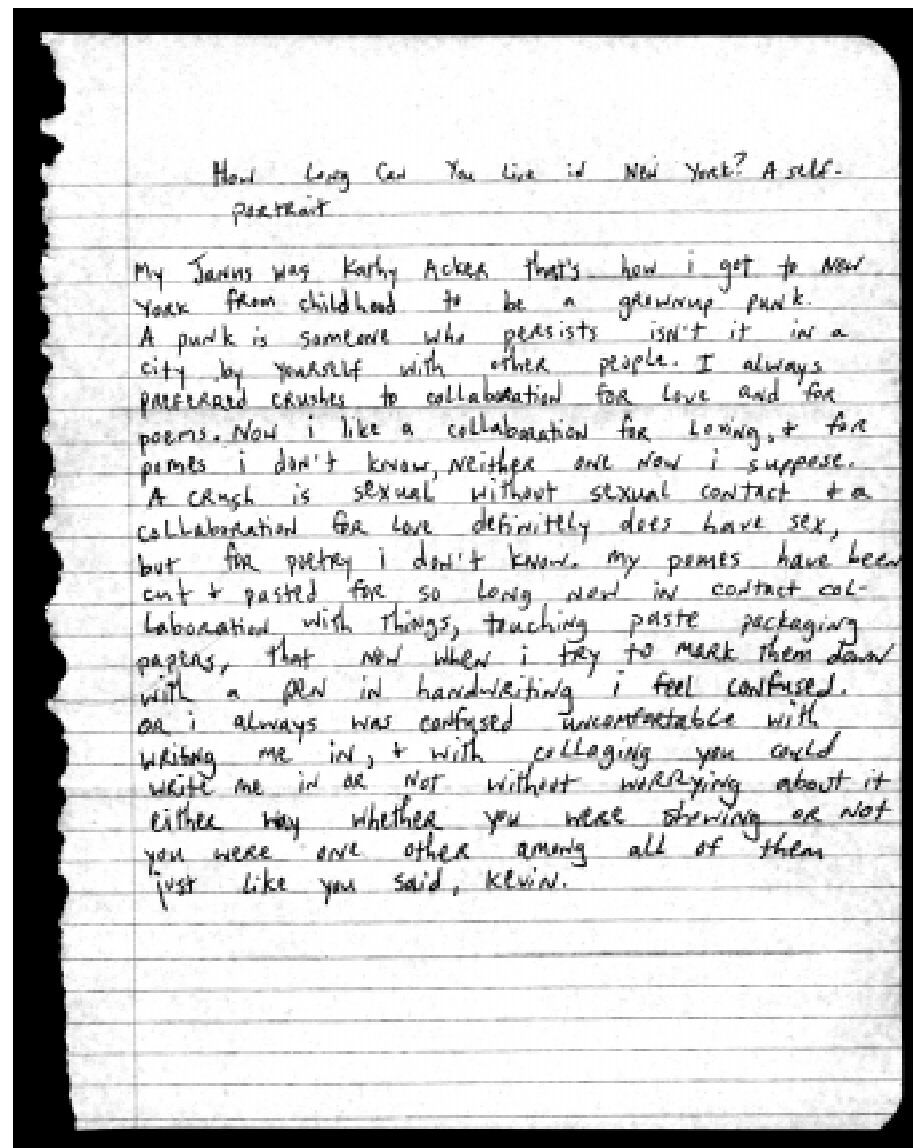 How Long Can You Live in New York? A self-
portrait
My Janus was Kathy Acker that's how i got to New
York from childhood to be a grownup punk.
A punk is someone who persists isn't it in a
city by yourself with other people. I always
preferred crushes to collaboration for love and for
poems. Now i like a collaboration for loving, + for
pomes i don't know, neither one now i suppose.
A crush is sexual without sexual contact + a
collaboration for love definitely does have sex,
but for poetry i don't know. my pomes have been
cut + pasted for so long now in contact col-
laboration with things, touching paste packaging
papers, that now when i try to mark them down
with a pen in handwriting i feel confused.
or i always was confused uncomfortable with
writing me in, + with collaging you could
write me in or not without worrying about it
either way whether you were showing or not
you were one other among all of them
just like you said, Kevin.